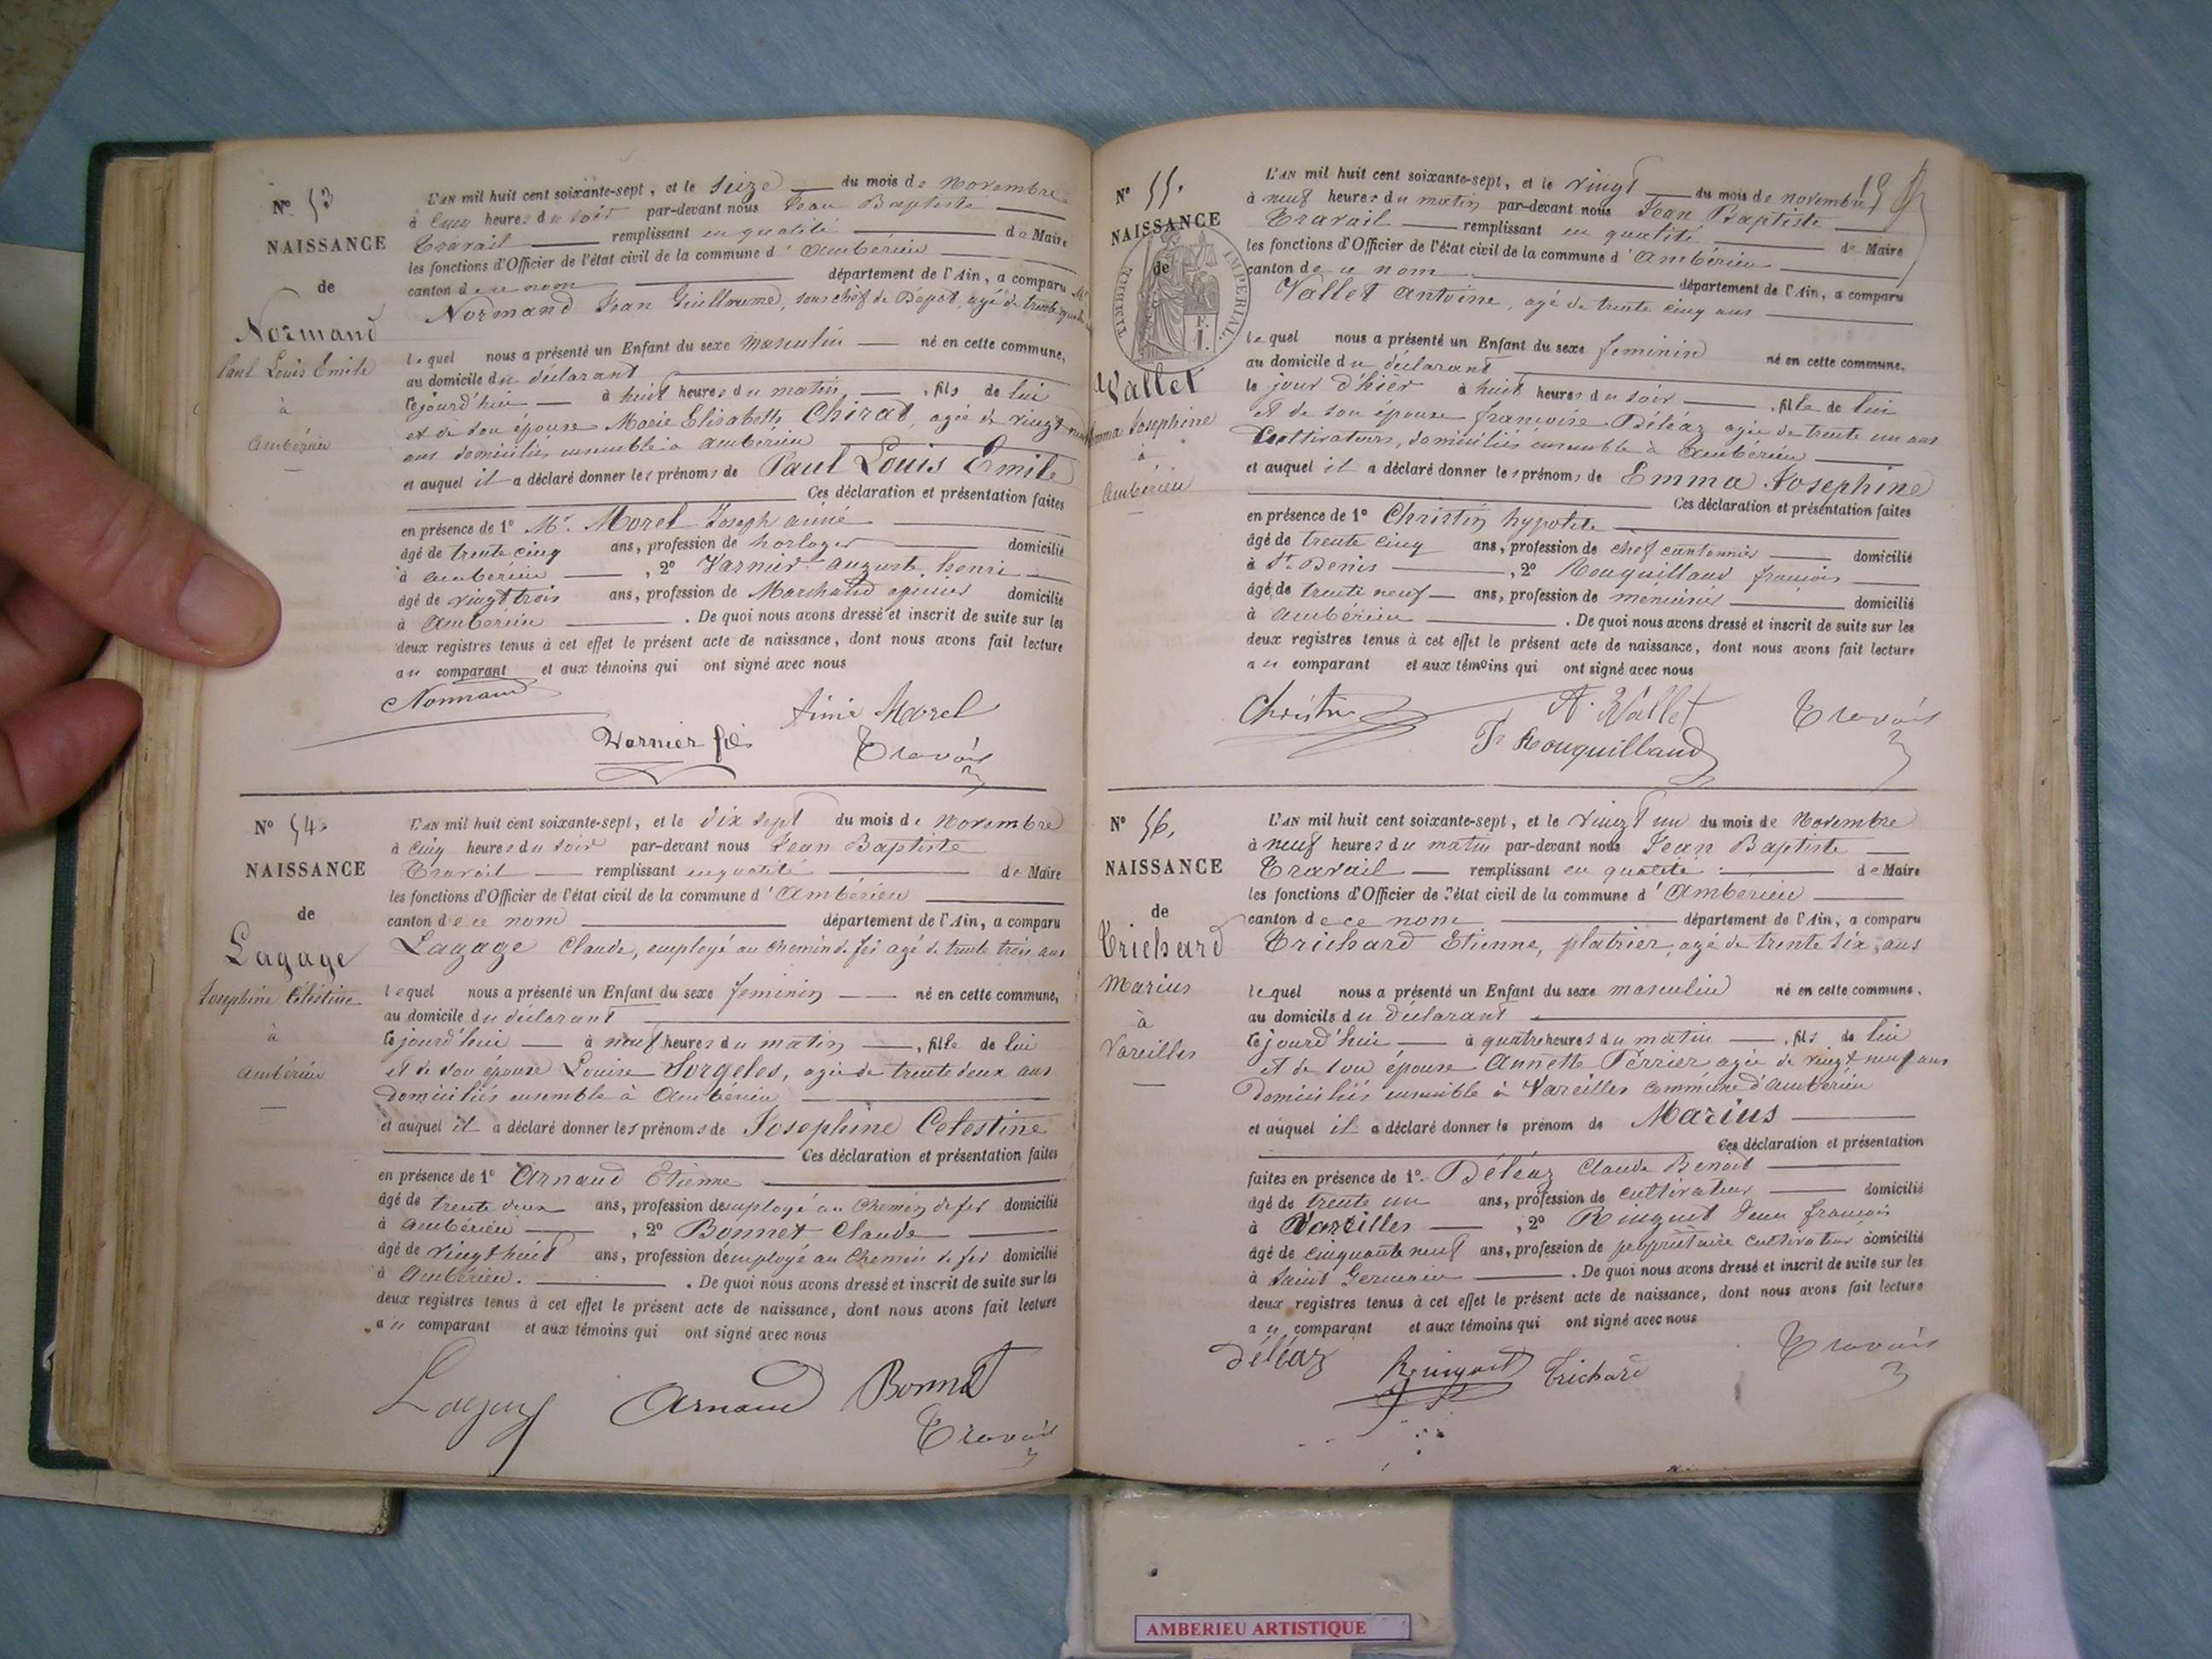 Nº 53
NAISSANCE
de
Normand
Paul Louis Emile
à
Ambérieu
L'AN mil huit cent soixante-sept, et le Seize du mois de Novembre
à cinq heures du soir par-devant nous Jean Baptiste
Travail remplissant en qualité de Maire
les fonctions d'Officier de l'état civil de la commune d'Ambérieu
canton de ce nom département de l'Ain, a comparu Mr
Normand Jean Guillaume, sous chef de Dépot, agé de trente
lequel nous a présenté un Enfant du sexe masculin né en cette commune,
au domicile du déclarant
cejourd'hui à huit heures du matin, fils de lui
et de son épouse Marie Elisabeth Chirat, agée de vingt
ans domiciliés ensemble à Ambérieu
et auquel il a déclaré donner les prénoms de Paul Louis Emile
Ces déclaration et présentation faites
en présence de 1º Mr. Morel Joseph aimé
âgé de trente cinq ans, profession de horloger domicilié
à Ambérieu, 2º Varnier auguste henri
âgé de vingt trois ans, profession de Marchand épicier domicilié
à Ambérieu. De quoi nous avons dressé et inscrit de suite sur les
deux registres tenus à cet effet le présent acte de naissance, dont nous avons fait lecture
au comparant et aux témoins qui ont signé avec nous
Normand
Aimé Morel
Varnier fils
Travail
Nº 54.
NAISSANCE
de
Lagage
Josephine Célestine
à
Ambérieu
L'AN mil huit cent soixante-sept, et le dix sept du mois de Novembre
à cinq heures du soir par-devant nous Jean Baptiste
Travail remplissant en qualité de Maire
les fonctions d'Officier de l'état civil de la commune d'Ambérieu
canton de ce nom département de l'Ain, a comparu
Lagage Claude, employé au chemin de fer agé de trente trois ans
lequel nous a présenté un Enfant du sexe feminin né en cette commune,
au domicile du déclarant
cejourd'hui à neuf heures du matin, fille de lui
et de son épouse Louise Sorgeles, agée de trente deux ans
domiciliés ensemble à Ambérieu
et auquel il a déclaré donner les prénoms de Josephine Celestine
Ces déclaration et présentation faites
en présence de 1º Arnaud Etienne
âgé de trente deux ans, profession d'employé au Chemin de fer domicilié
à Ambérieu, 2º Bonnet Claude
âgé de vingt huit ans, profession d'employé au Chemin de fer domicilié
à Ambérieu. De quoi nous avons dressé et inscrit de suite sur les
deux registres tenus à cet effet le présent acte de naissance, dont nous avons fait lecture
au comparant et aux témoins qui ont signé avec nous
Lagage Arnaud Bonnet
Travail
Nº 55.
NAISSANCE
de
TIMBRE IMPÉRIAL
Vallet
Emma Josephine
à
Ambérieu
L'AN mil huit cent soixante-sept, et le vingt du mois de novembre
à neuf heures du matin par-devant nous Jean Baptiste
Travail remplissant en qualité de Maire
les fonctions d'Officier de l'état civil de la commune d'Ambérieu
canton de ce nom département de l'Ain, a comparu
Vallet Antoine, agé de trente cinq ans
lequel nous a présenté un Enfant du sexe feminin né en cette commune.
au domicile du déclarant
le jour d'hier à huit heures du soir, fille de lui
et de son épouse françoise Déléaz agée de trente un ans
Cultivateurs, domiciliés ensemble à Ambérieu
et auquel il a déclaré donner les prénoms de Emma Josephine
Ces déclaration et présentation faites
en présence de 1º Christin hypolite
âgé de trente cinq ans, profession de chef cantonnier domicilié
à St. Denis, 2º Rouquilland françois
âgé de trente neuf ans, profession de menuisier domicilié
à Ambérieu. De quoi nous avons dressé et inscrit de suite sur les
deux registres tenus à cet effet le présent acte de naissance, dont nous avons fait lecture
au comparant et aux témoins qui ont signé avec nous
Christin A. Vallet Travail
Fr Rouquilland
Nº 56.
NAISSANCE
de
Trichard
Marius
à
Vareilles
L'AN mil huit cent soixante-sept, et le vingt un du mois de Novembre
à neuf heures du matin par-devant nous Jean Baptiste
Travail remplissant en qualité de Maire
les fonctions d'Officier de l'état civil de la commune d'Ambérieu
canton de ce nom département de l'Ain, a comparu
Trichard Etienne, platrier, agé de trente six ans
lequel nous a présenté un Enfant du sexe masculin né en cette commune.
au domicile du déclarant
cejourd'hui à quatre heures du matin, fils de lui
et de son épouse Annette Perrier agée de vingt neuf ans
domiciliés ensemble à Vareilles commune d'Ambérieu
et auquel il a déclaré donner le prénom de Marius
Ces déclaration et présentation
faites en présence de 1º Déléaz Claude Benoit
âgé de trente un ans, profession de cultivateur domicilié
à Vareilles, 2º Ringuet Jean françois
âgé de cinquante neuf ans, profession de propriétaire cultivateur domicilié
à Saint Germain. De quoi nous avons dressé et inscrit de suite sur les
deux registres tenus à cet effet le présent acte de naissance, dont nous avons fait lecture
au comparant et aux témoins qui ont signé avec nous
Déléaz Ringuet Trichard Travail
AMBERIEU ARTISTIQUE